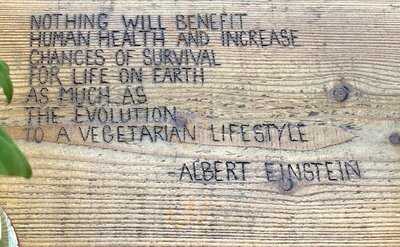 NOTHING WILL BENEFIT
HUMAN HEALTH AND INCREASE
CHANCES OF SURVIVAL
FOR LIFE ON EARTH
AS MUCH AS
THE EVOLUTION
TO A VEGETARIAN LIFESTYLE
-ALBERT EINSTEIN